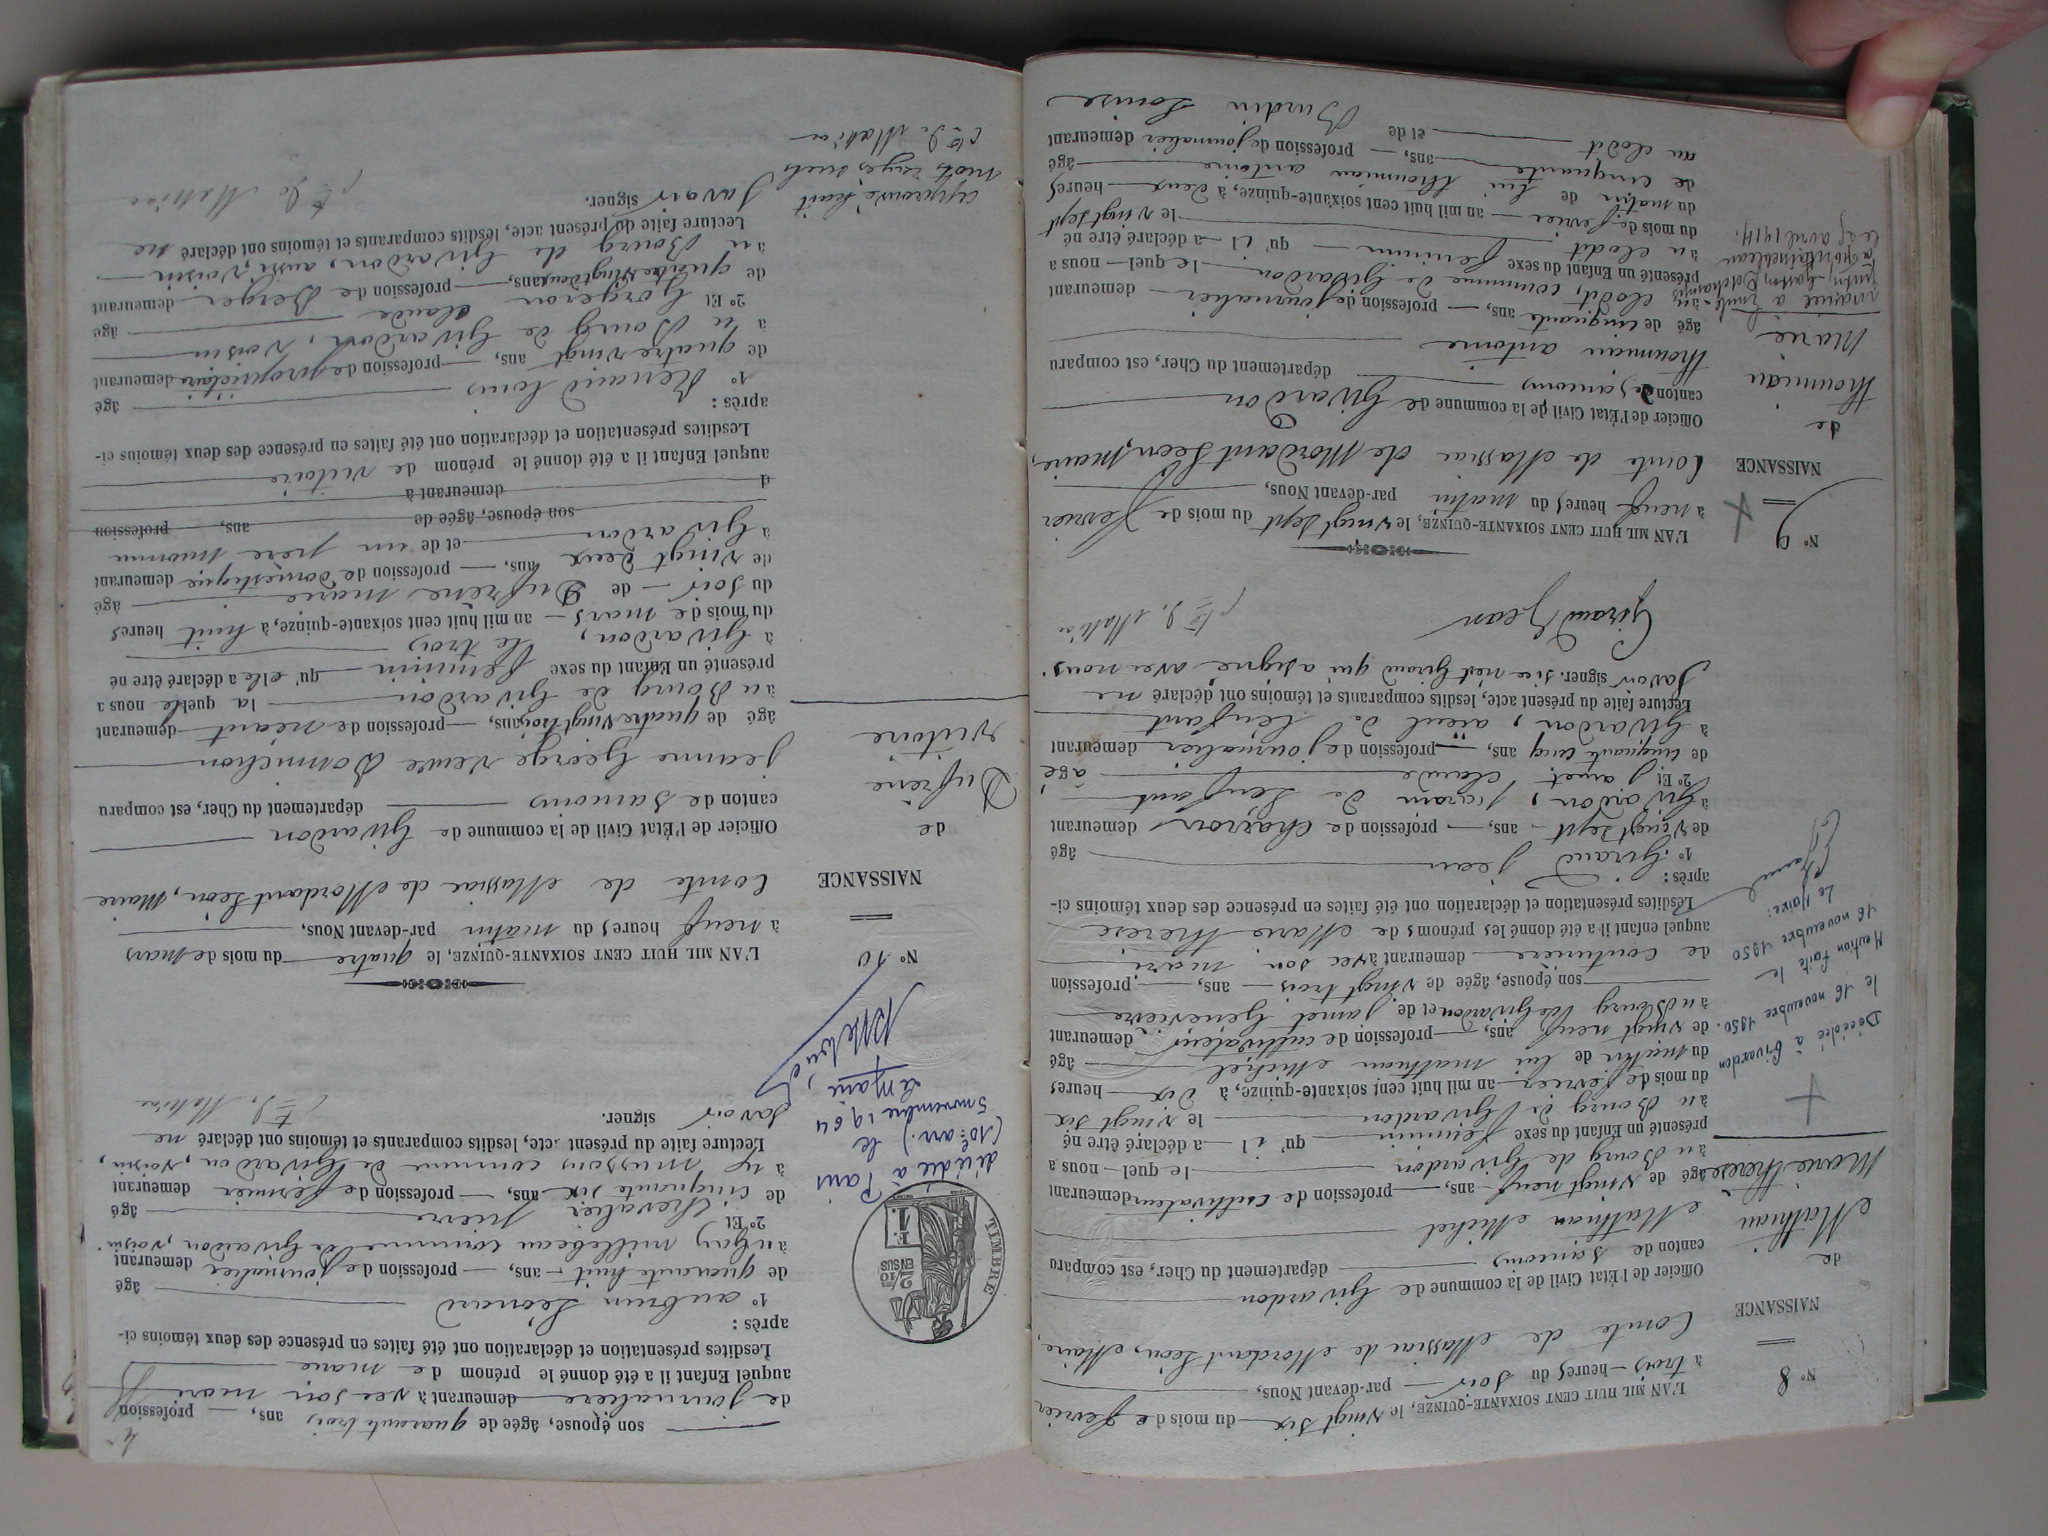 N° 8
NAISSANCE
de
Mathiau
Marie Thérèse
Décédée à Givardon
le 16 novembre 1950.
Mention faite le
16 novembre 1950
Le Maire:
L'AN MIL HUIT CENT SOIXANTE-QUINZE, le vingt six du mois de fevrier
à trois heures du soir par-devant Nous,
Comte de Massiac de Mordant Léon, Maire
Officier de l'État Civil de la commune de Givardon
canton de Sancoins département du Cher, est comparu
Mathiau Michel
âgé de vingt neuf ans, profession de cultivateur demeurant
au Bourg de Givardon lequel nous a
présenté un Enfant du sexe feminin qu'il a déclaré être né
au Bourg de Givardon le vingt six
du mois de fevrier an mil huit cent soixante-quinze, à dix heures
du matin de lui Mathiau Michel âgé
de vingt neuf ans, profession de cultivateur demeurant
au Bourg de Givardon et de jamet Genevieve
son épouse, âgée de vingt trois ans, profession
de couturiere demeurant avec son mari
auquel Enfant il a été donné les prénoms de Marie Therese
Lesdites présentation et déclaration ont été faites en présence des deux témoins ci-
après :
1° Giraud jean âgé
de vingt sept ans, profession de charron demeurant
à Givardon, parain de l'enfant
2° Et jamet claude âgé
de cinquante cinq ans, profession de journalier demeurant
à Givardon, aïeul de l'enfant
Lecture faite du présent acte, lesdits comparants et témoins ont déclaré ne
savoir signer. si ce n'est Giraud qui a signé avec nous.
Giraud Jean
N° 9
NAISSANCE
de
thoumiau
Marie
mariée à
à Fontainebleau
le 25 avril 1914.
L'AN MIL HUIT CENT SOIXANTE-QUINZE, le vingt sept du mois de fevrier
à neuf heures du matin par-devant Nous,
Comte de Massiac de Mordant Léon, Maire,
Officier de l'État Civil de la commune de Givardon
canton de Sancoins département du Cher, est comparu
thoumiau antoine
âgé de cinquante ans, profession de journalier demeurant
au clodit, commune de Givardon lequel nous a
présenté un Enfant du sexe feminin qu'il a déclaré être né
au clodit le vingt sept
du mois de fevrier an mil huit cent soixante-quinze, à deux heures
du matin de lui thoumiau antoine âgé
de cinquante ans, profession de journalier demeurant
au clodit et de Burdin Louise
son épouse, âgée de quarante trois ans, profession
de journaliere demeurant avec son mari
auquel Enfant il a été donné le prénom de marie
Lesdites présentation et déclaration ont été faites en présence des deux témoins ci-
après :
1° aubrun Léonard âgé
de quarante huit ans, profession de journalier demeurant
commune de Givardon, voisin.
2° Et Chevalier pierre âgé
de cinquante six ans, profession de fermier demeurant
à commune de Givardon, voisin,
Lecture faite du présent acte, lesdits comparants et témoins ont déclaré ne
savoir signer.
TIMBRE
2/10 EN SUS
F. 1.
décédée à Paris
(10e arr.) le
5 novembre 1964
Le Maire,
N° 10
NAISSANCE
de
Dufrène
victoire
L'AN MIL HUIT CENT SOIXANTE-QUINZE le quatre du mois de mars
à neuf heures du matin par-devant Nous,
Comte de Massiac de Mordant Léon, Maire
Officier de l'État Civil de la commune de Givardon
canton de Sancoins département du Cher, est comparu
jeanne George veuve Bonnichon
âgé de quatre vingt trois ans, profession de néant demeurant
au Bourg de Givardon laquelle nous a
présenté un Enfant du sexe feminin qu'elle a déclaré être né
à Givardon, le trois
du mois de mars an mil huit cent soixante-quinze, à huit heures
du soir de Dufrène marie âgé
de vingt deux ans, profession de domestique demeurant
à Givardon et de un père inconnu
son épouse, âgée de ans, profession
d demeurant à
auquel Enfant il a été donné le prénom de victoire
Lesdites présentation et déclaration ont été faites en présence des deux témoins ci-
après :
1° Renaud Louis âgé
de quatre vingt ans, profession de propriétaire demeurant
au Bourg de Givardon, voisin
2° Et Gorgeron claude âgé
de quatre vingt deux ans, profession de Berger demeurant
au Bourg de Givardon, aussi voisin
Lecture faite du présent acte, lesdits comparants et témoins ont déclaré ne
savoir signer.
approuvé huit
mots rayés nuls